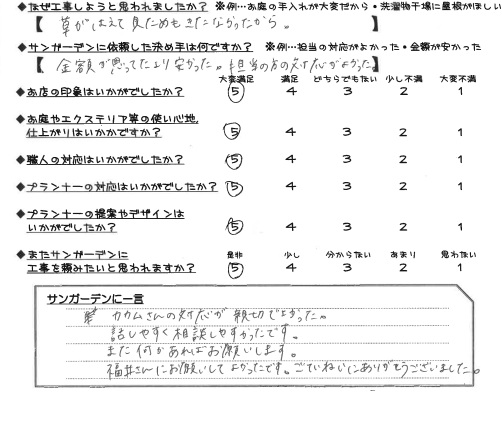 ◆なぜ工事しようと思われましたか？ ※例…お庭の手入れが大変だから・洗濯物干場に屋根がほしい
【 草がはえて見ためもきたなかったから。 】
◆サンガーデンに依頼した決め手は何ですか？ ※例…担当の対応がよかった・金額が安かった
【 金額が思ってたより安かった。担当の方の対応がよかった】
大変満足 満足 どちらでもない 少し不満 大変不満
◆お店の印象はいかがでしたか？ 5 4 3 2 1
◆お庭やエクステリア等の使い心地、
仕上がりはいかかですか？ 5 4 3 2 1
◆職人の対応はいかがでしたか？ 5 4 3 2 1
◆プランナーの対応はいかがでしたか？ 5 4 3 2 1
◆プランナーの提案やデザインは
いかがでしたか？ 5 4 3 2 1
◆またサンガーデンに 是非 少し 分からない あまり 思わない
工事を頼みたいと思われますか？ 5 4 3 2 1
サンガーデンに一言
さんの対応が親切でよかった。
話しやすく相談しやすかったです。
また何かあればお願いします。
福井さんにお願いしてよかったです。ごていねいにありがとうございました。